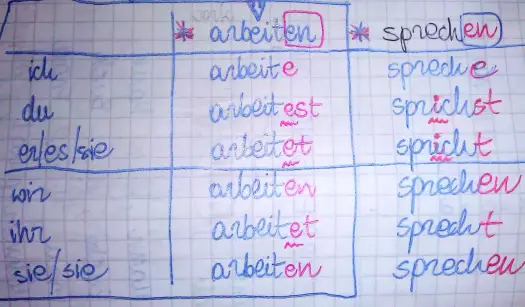 * arbeiten * sprechen
ich arbeite spreche
du arbeitest sprichst
er/es/sie arbeitet spricht
wir arbeiten sprechen
ihr arbeitet sprecht
sie/sie arbeiten sprechen